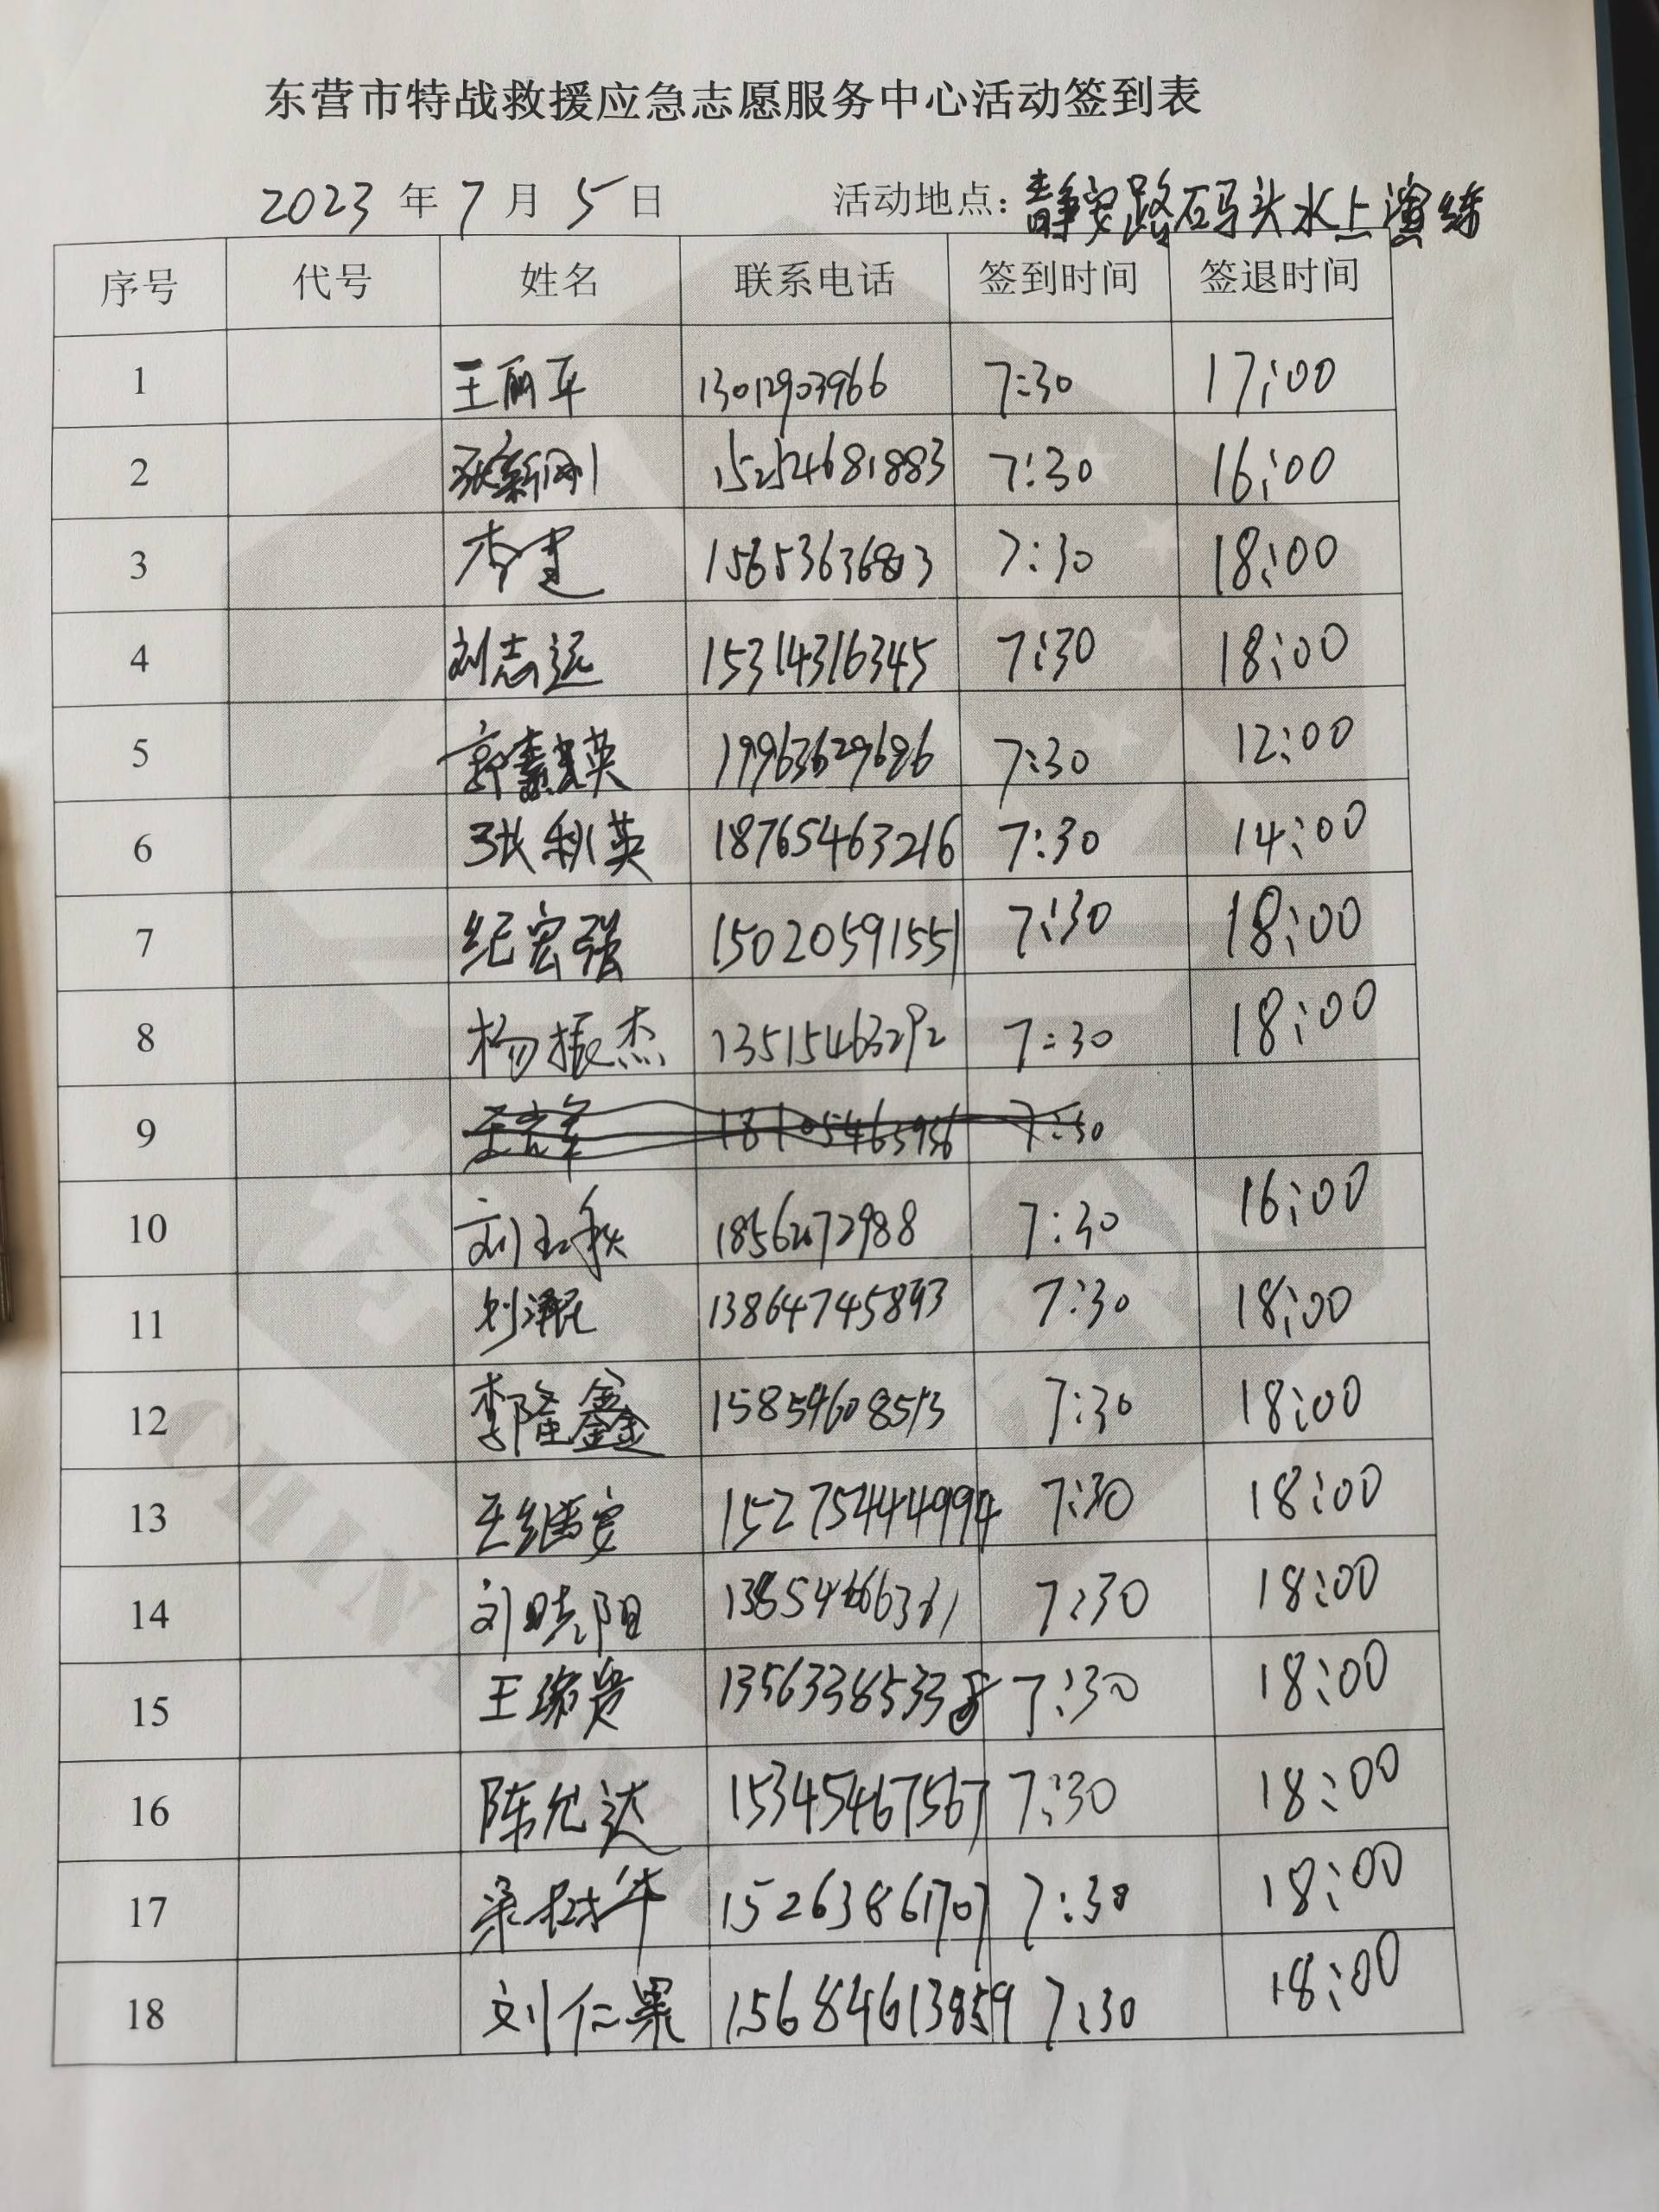 东营市特战救援应急志愿服务中心活动签到表
2023年7月5日 活动地点：静安路码头水上演练
序号 代号 姓名 联系电话 签到时间 签退时间
1 王丽平 13012903966 7:30 17:00
2 张新刚 15254681883 7:30 16:00
3 李建 7:30 18:00
4 刘志远 15314316345 7:30 18:00
5 英 19963629686 7:30 12:00
6 张秋英 18765463216 7:30 14:00
7 纪宏强 15020591551 7:30 18:00
8 杨振杰 13515463292 7:30 18:00
9 7:30
10 刘玉秋 18562072988 7:30 16:00
11 刘 13864745893 7:30 18:00
12 李隆鑫 15854608513 7:30 18:00
13 王继安 15275444994 7:30 18:00
14 刘晓阳 7:30 18:00
15 王瑞贤 13563385338 7:30 18:00
16 陈允达 15345467567 7:30 18:00
17 梁树华 15263861707 7:30 18:00
18 刘仁果 15684613859 7:30 18:00
CHINA